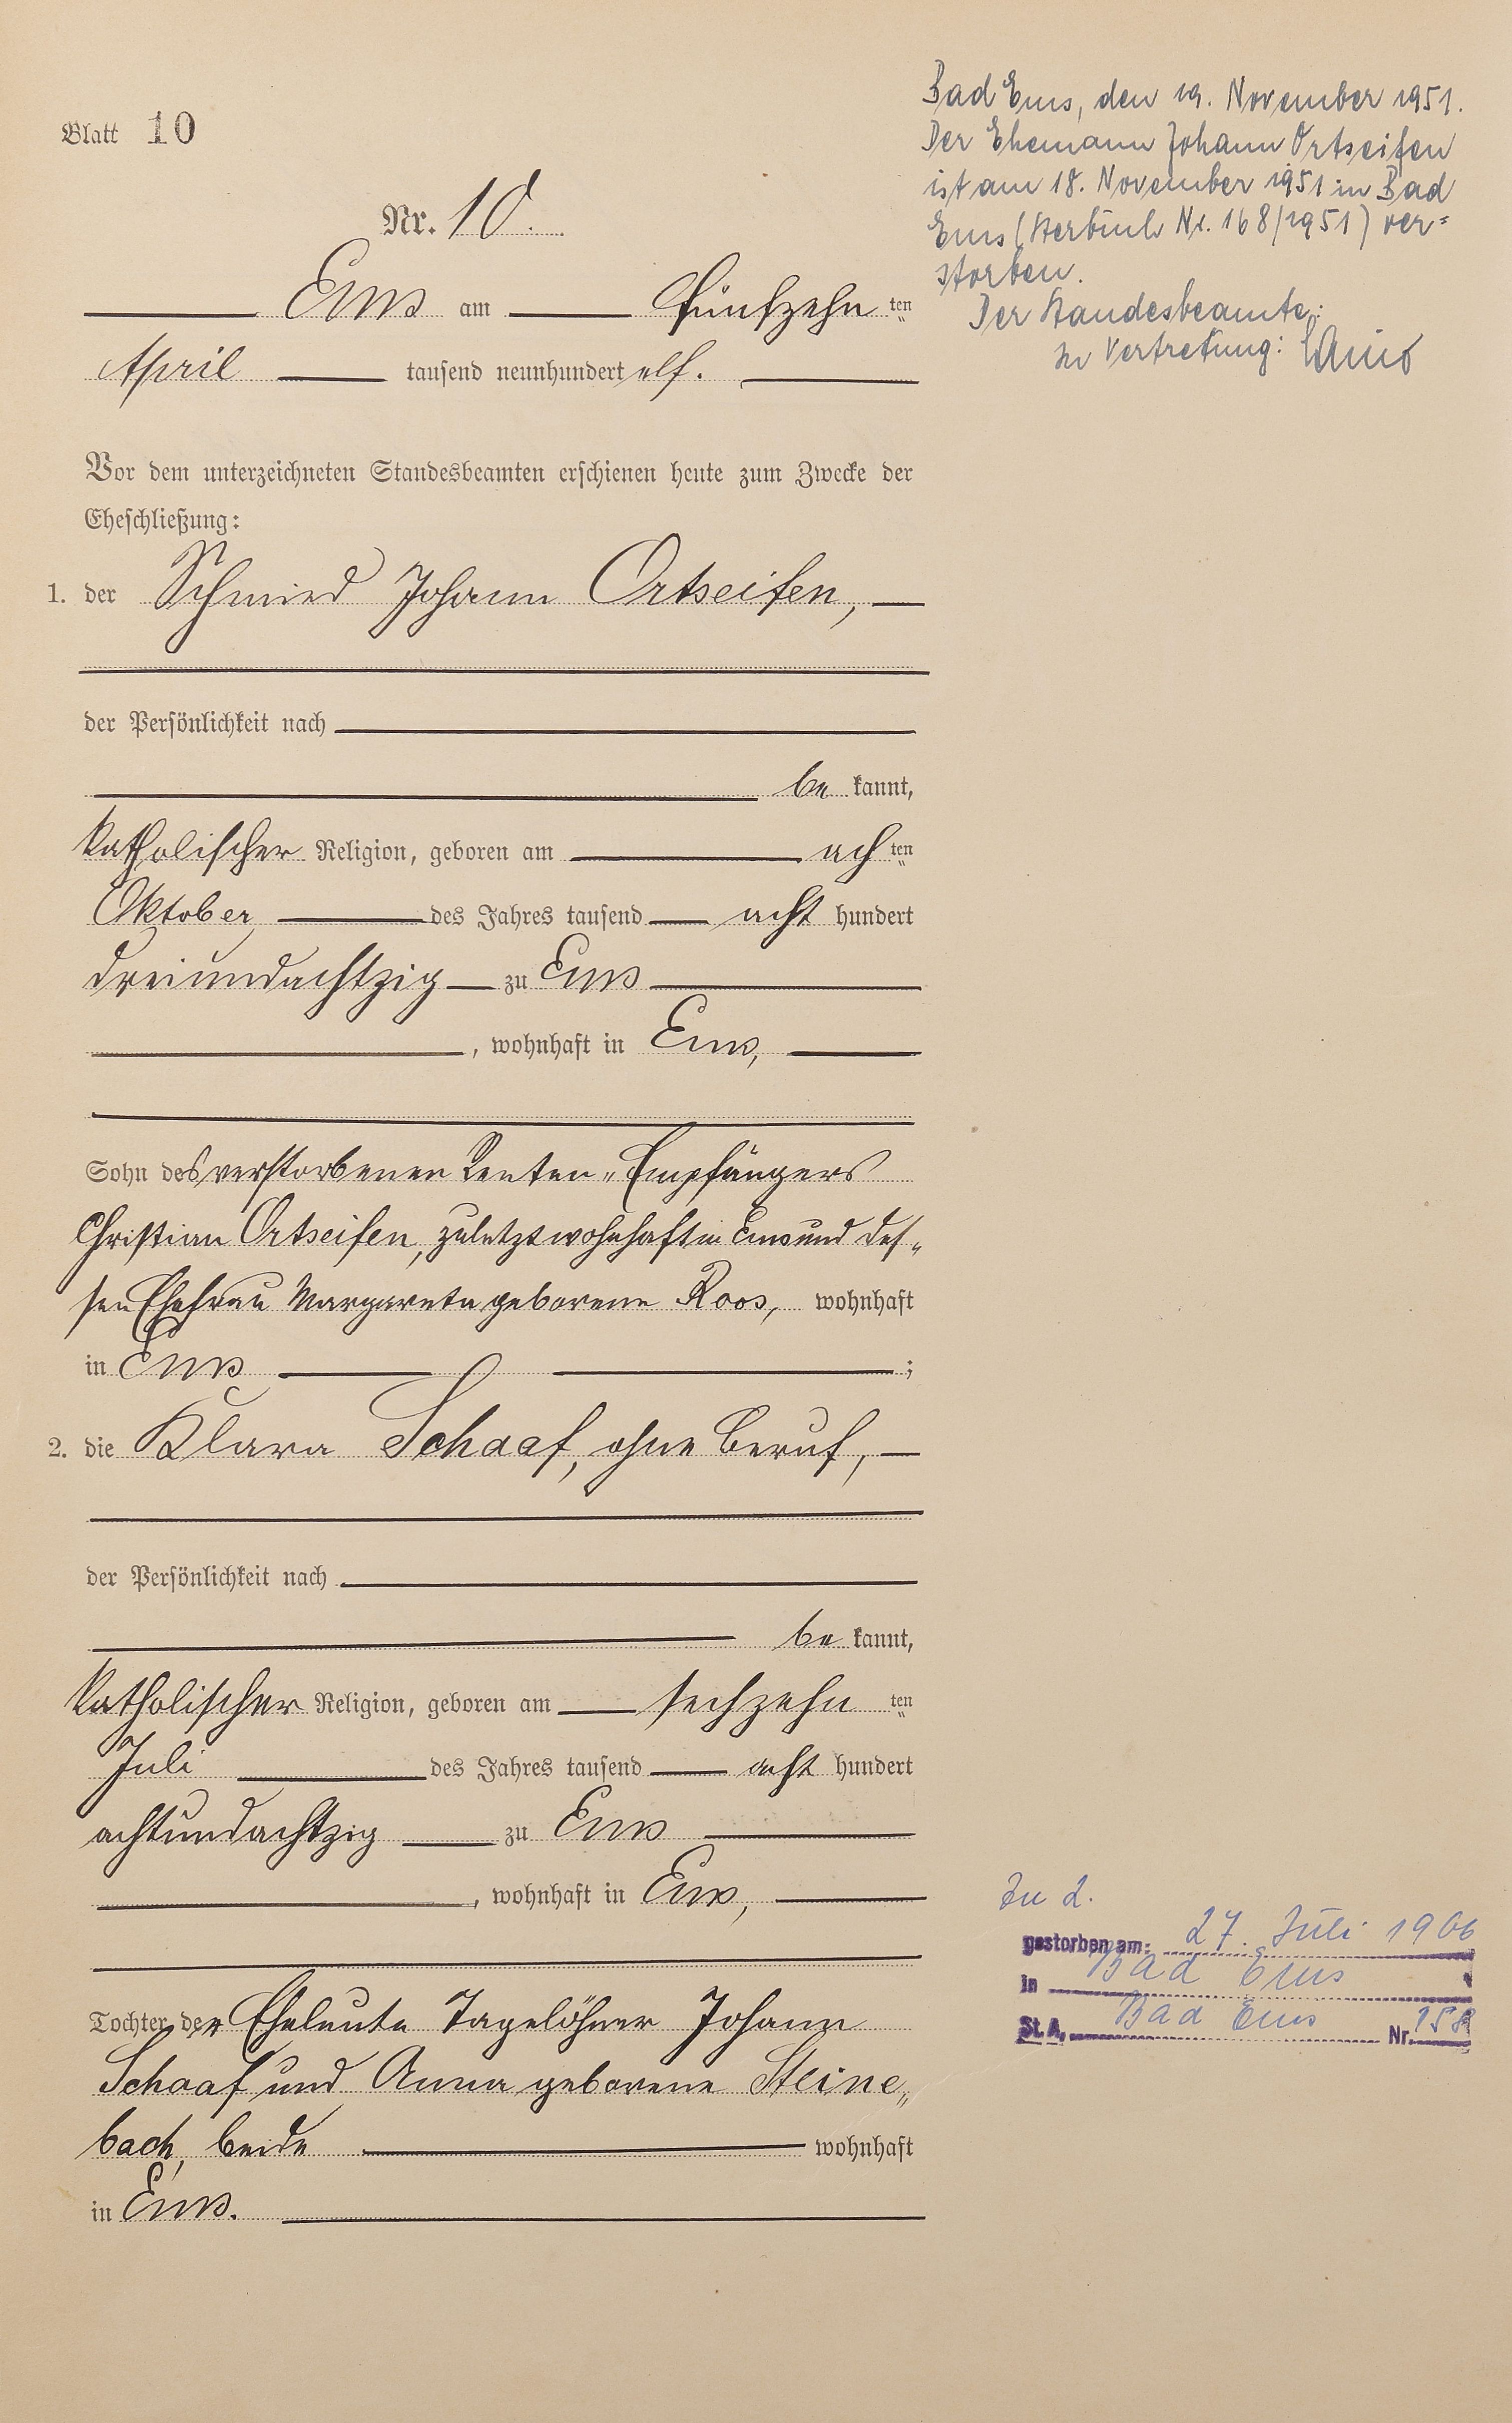 Blatt 10
Nr. 10.
Ems am Fünfzehn ten
April tausend neunhundert elf.
Vor dem unterzeichneten Standesbeamten erschienen heute zum Zwecke der
Eheschließung:
1. der Schmied Johann Ortseifen,
der Persönlichkeit nach
be kannt,
katholischer Religion, geboren am ach ten
Oktober des Jahres tausend acht hundert
dreiundachtzig zu Ems
, wohnhaft in Ems,
Sohn des verstorbenen Renten-Empfängers
Christian Ortseifen, zuletzt wohnhaft in Ems und des-
sen Ehefrau Margareta geborene Roos, wohnhaft
in Ems ;
2. die Klara Schaaf, ohne Beruf,
der Persönlichkeit nach
be kannt,
katholischer Religion, geboren am sechzehn ten
Juli des Jahres tausend acht hundert
achtundachtzig zu Ems
, wohnhaft in Ems,
Tochter der Eheleute Tagelöhner Johann
Schaaf und Anna geborene Steine-
bach, beide wohnhaft
in Ems.
Bad Ems, den 19. November 1951.
Der Ehemann Johann Ortseifen
ist am 18. November 1951 in Bad
Ems (Sterbuch Nr. 168/1951) ver=
storben.
Der Standesbeamte:
In Vertretung:
Zu 2.
gestorben am: 27. Juli 1966
in Bad Ems
St. A. Bad Ems Nr. 158